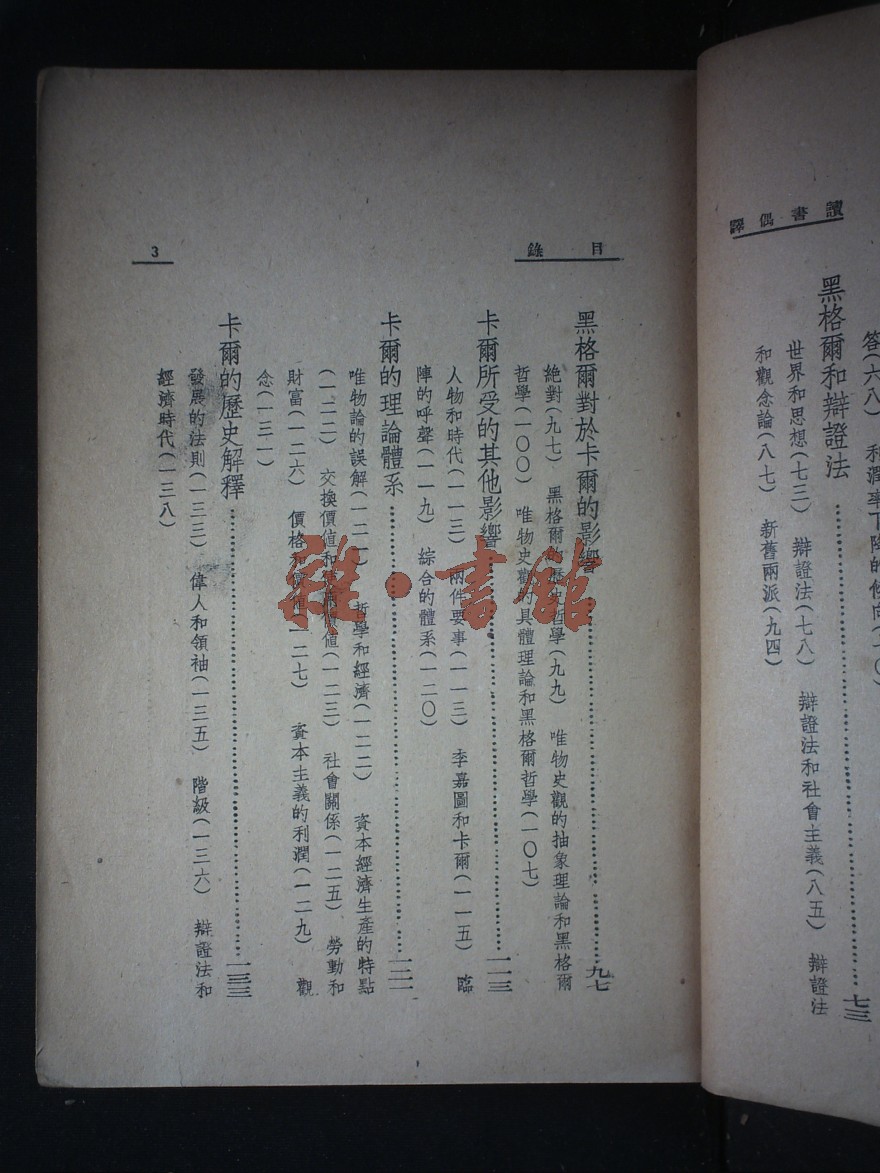 讀書偶譯
答(六八)　利潤率下降的傾向(七〇)
黑格爾和辯證法……七三
世界和思想(七三)　辯證法(七八)　辯證法和社會主義(八五)　辯證法
和觀念論(八七)　新舊兩派(九四)
目錄
3
黑格爾對於卡爾的影響……九七
絶對(九七)　黑格爾的歷史哲學(九九)　唯物史觀的抽象理論和黑格爾
哲學(一〇〇)　唯物史觀的具體理論和黑格爾哲學(一〇七)
卡爾所受的其他影響……一一三
人物和時代(一一三)　兩件要事(一一三)　李嘉圖和卡爾(一一五)　臨
陣的呼聲(一一九)　綜合的體系(一二〇)
卡爾的理論體系……一二一
唯物論的誤解(一二一)　哲學和經濟(一二二)　資本經濟生產的特點
(一二二)　交換價值和使用價值(一二三)　社會關係(一二五)　勞動和
財富(一二六)　價格和價值(一二七)　資本主義的利潤(一二九)　觀
念(一三一)
卡爾的歷史解釋……一三三
發展的法則(一三三)　偉人和領袖(一三五)　階級(一三六)　辯證法和
經濟時代(一三八)
雜·書館